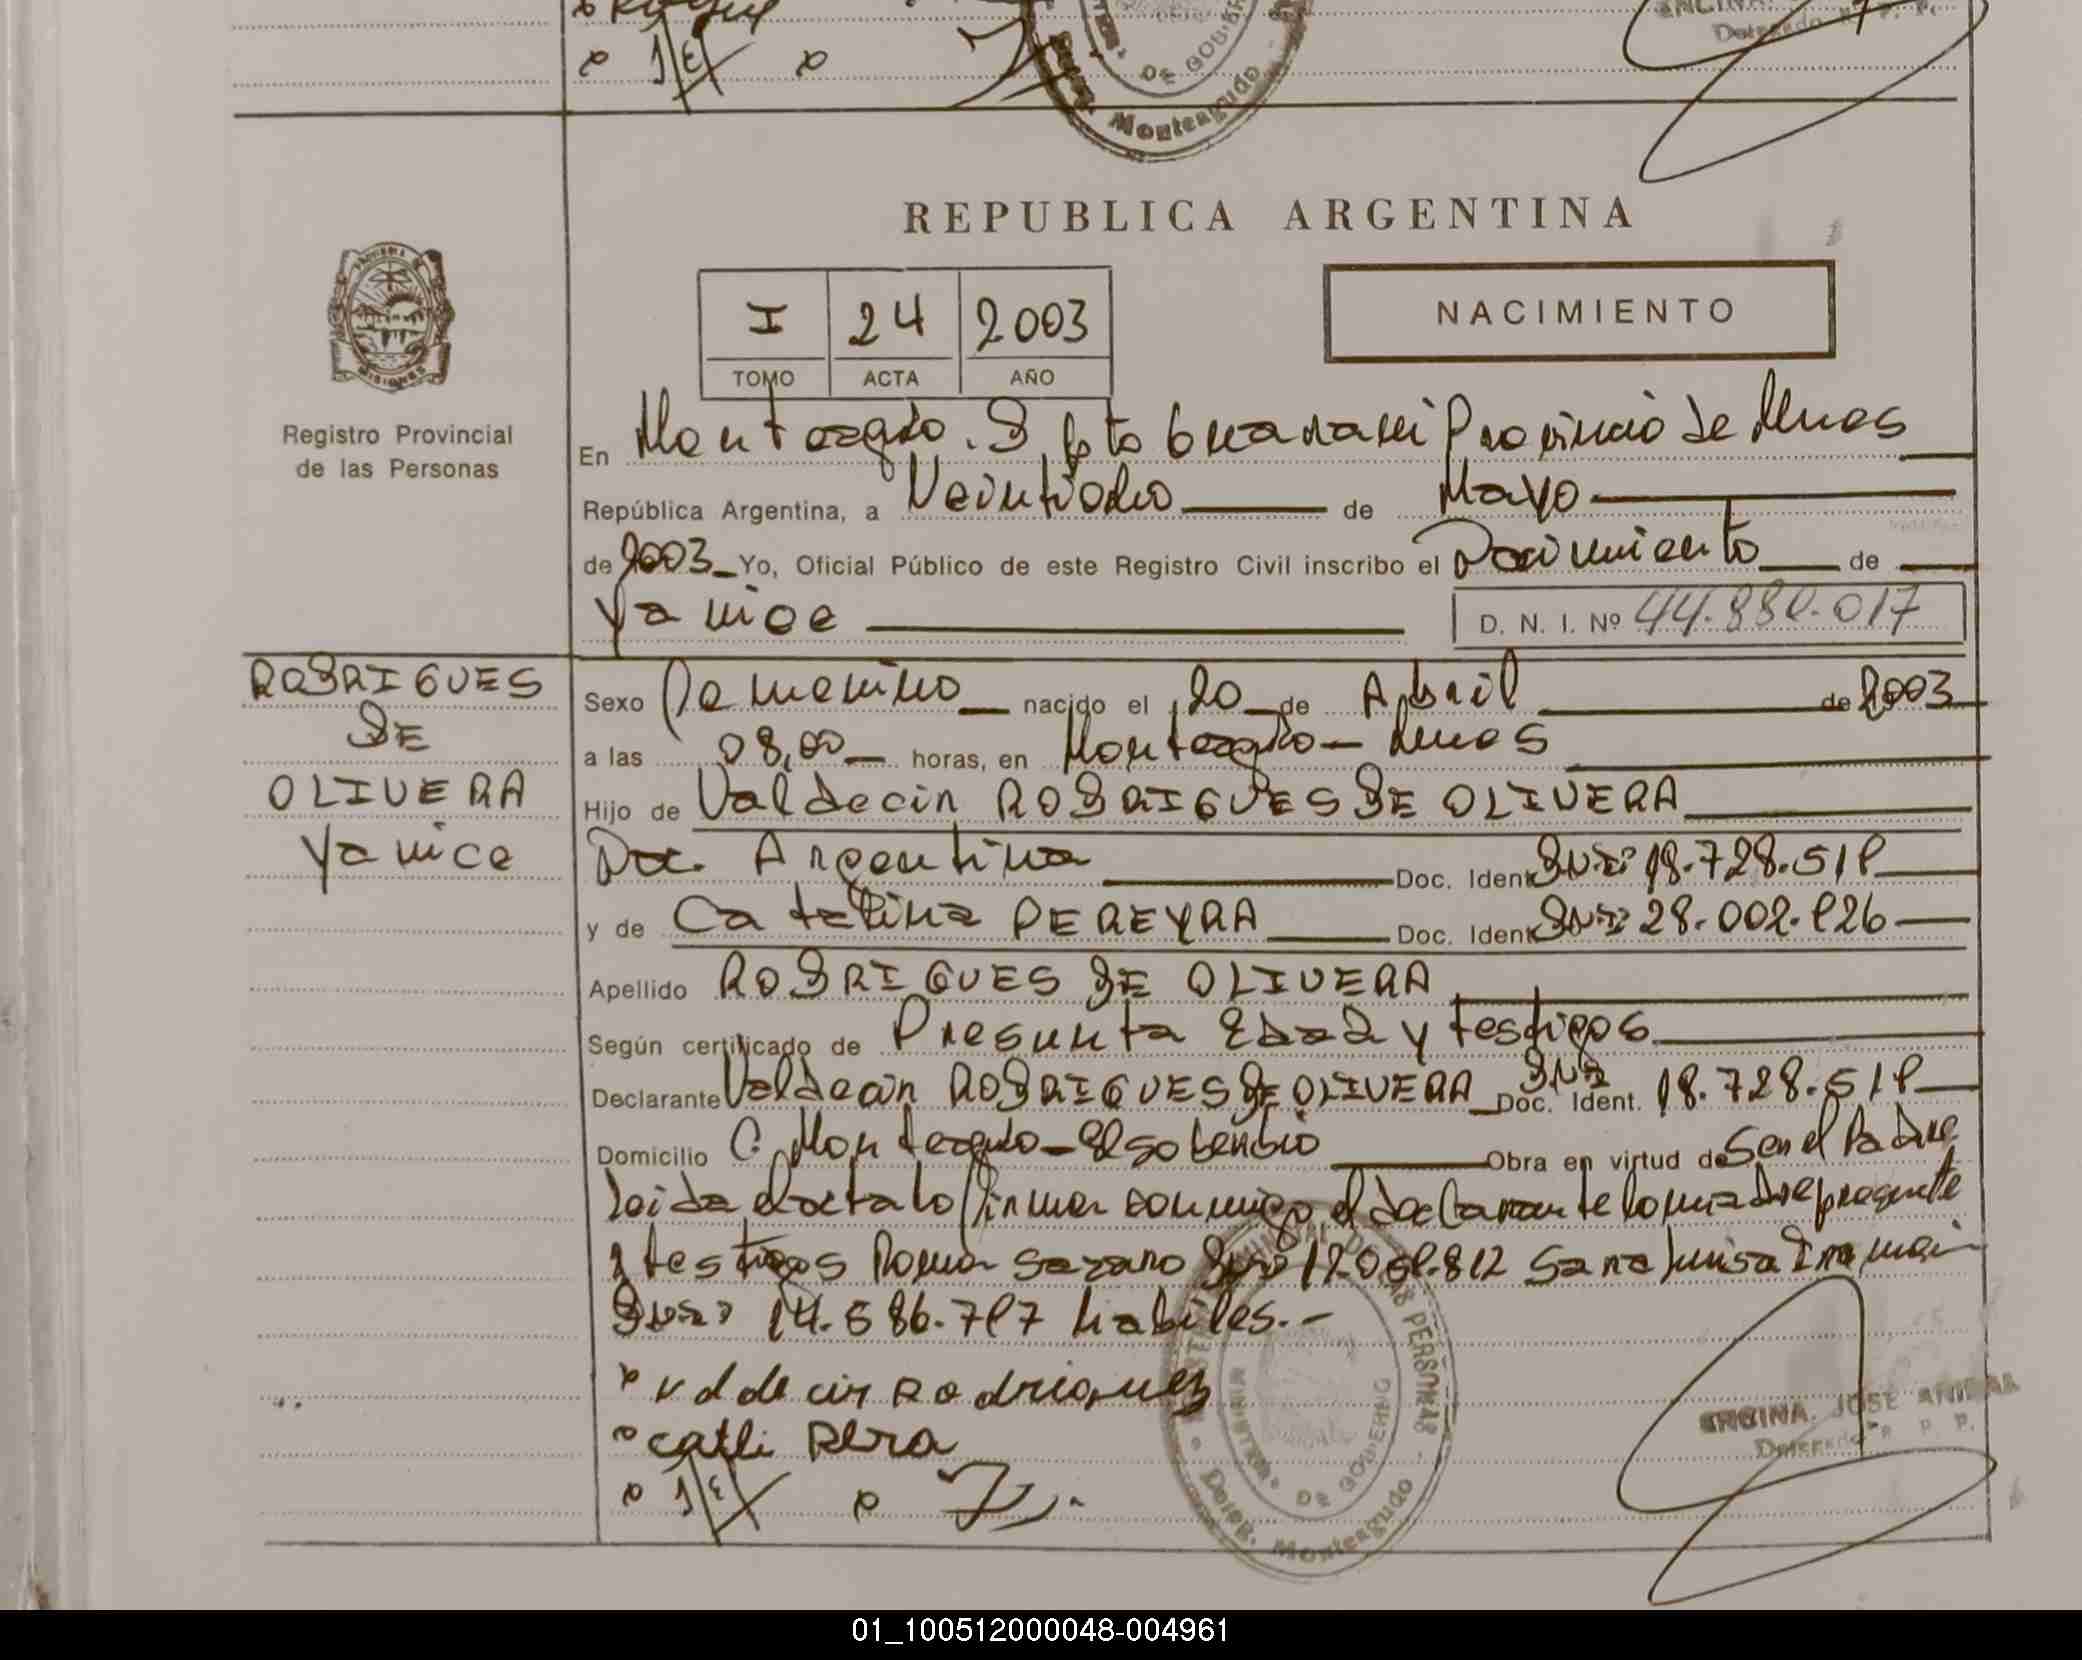 DE GOBIER
Monteagudo
REPUBLICA ARGENTINA
I 24 2003
TOMO ACTA AÑO
NACIMIENTO
MISIONES
Registro Provincial
de las Personas
En Monteagdo. Dpto Guarani Provincia de Mnes
República Argentina, a Veintiocho de Mayo
de 2003 Yo, Oficial Público de este Registro Civil inscribo el Nacimiento de
Yanice
D. N. I. Nº 44.880.017
RODRIGUES
DE
OLIVERA
Yanice
Sexo Femenino nacido el 20 de Abril de 2003
a las 08,00 horas, en Monteagdo - Mnes
Hijo de Valdecin RODRIGUES DE OLIVERA
Nac. Argentina Doc. Ident DNI: 18.728.519
y de Catalina PEREYRA Doc. Ident DNI: 28.002.926
Apellido RODRIGUES DE OLIVERA
Según certificado de Presunta Edad y testigos
Declarante Valdecin RODRIGUES DE OLIVERA Doc. Ident. DNI 18.728.519
Domicilio C. Monteagdo - El Soberbio Obra en virtud de Ser el Padre
leida el acta la firman conmigo, el declarante la madre presente
y testigos DNI Sara Luisa
DNI: 14.586.797 habiles.-
catli
MINISTERIO DE GOBIERNO
Deleg. Monteagudo
ENCINA, JOSE ANIBAL
Delegado R. P. P.
01_100512000048-004961